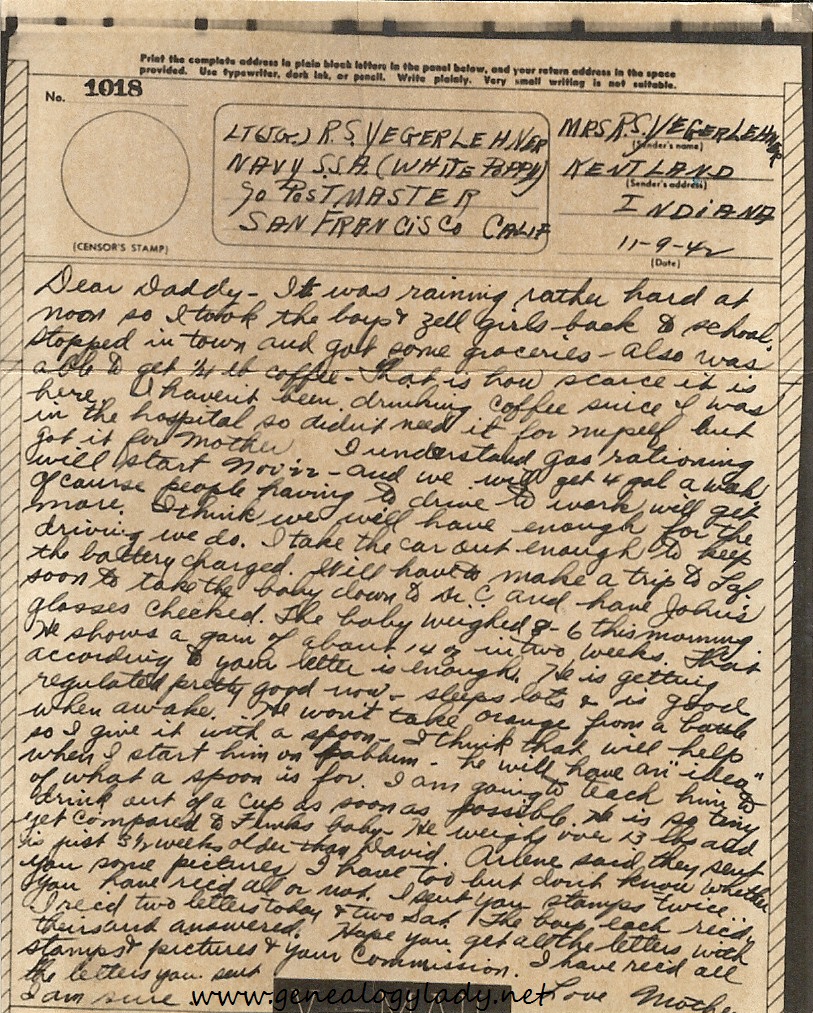 Print the complete address in plain block letters in the panel below, and your return address in the space
provided. Use typewriter, dark ink, or pencil. Write plainly. Very small writing is not suitable.
No. 1018
(CENSOR'S STAMP)
LT(JG.) R.S. VEGERLEHNER
NAVY S.S.A. (WHITE POPPY)
% POSTMASTER
SAN FRANCISCO CALIF
MRS R.S. VEGERLEHNER
(Sender's name)
KENTLAND
(Sender's address)
INDIANA
11-9-42
(Date)
Dear Daddy - It was raining rather hard at
noon so I took the boys & Zell girls back to school.
Stopped in town and got some groceries - also was
able to get 1/4 lb coffee - That is how scarce it is
here. I haven't been drinking coffee since I was
in the hospital so didn't need it for myself but
got it for Mother. I understand gas rationing
will start Nov 22 - and we will get 4 gal a week
Of course people having to drive to work will get
more. I think we will have enough for the
driving we do. I take the car out enough to keep
the battery charged. Will have to make a trip to Laf.
soon to take the baby down to Dr. C and have John's
glasses checked. The baby weighed 8-6 this morning.
He shows a gain of about 14 oz in two weeks. That
according to your letter is enough. He is getting
regulated pretty good now - sleeps lots & is good
when awake. He won't take orange from a bottle
so I give it with a spoon - I think that will help
when I start him on Pabblum - he will have an "idea"
of what a spoon is for. I am going to teach him to
drink out of a cup as soon as possible. He is so tiny
yet compared to Funks baby - He weighs over 13 lbs and
is just 3 1/2 weeks older than David. Arlene said they sent
you some pictures, I have too but don't know whether
you have rec'd all or not. I sent you stamps twice.
I recd two letters today & two Sat. The boys each rec'd
theirs and answered. Hope you get all the letters with
stamps & pictures & your Commission. I have rec'd all
the letters you sent
I am sure
Love Mother
www.genealogylady.net
V-MAIL